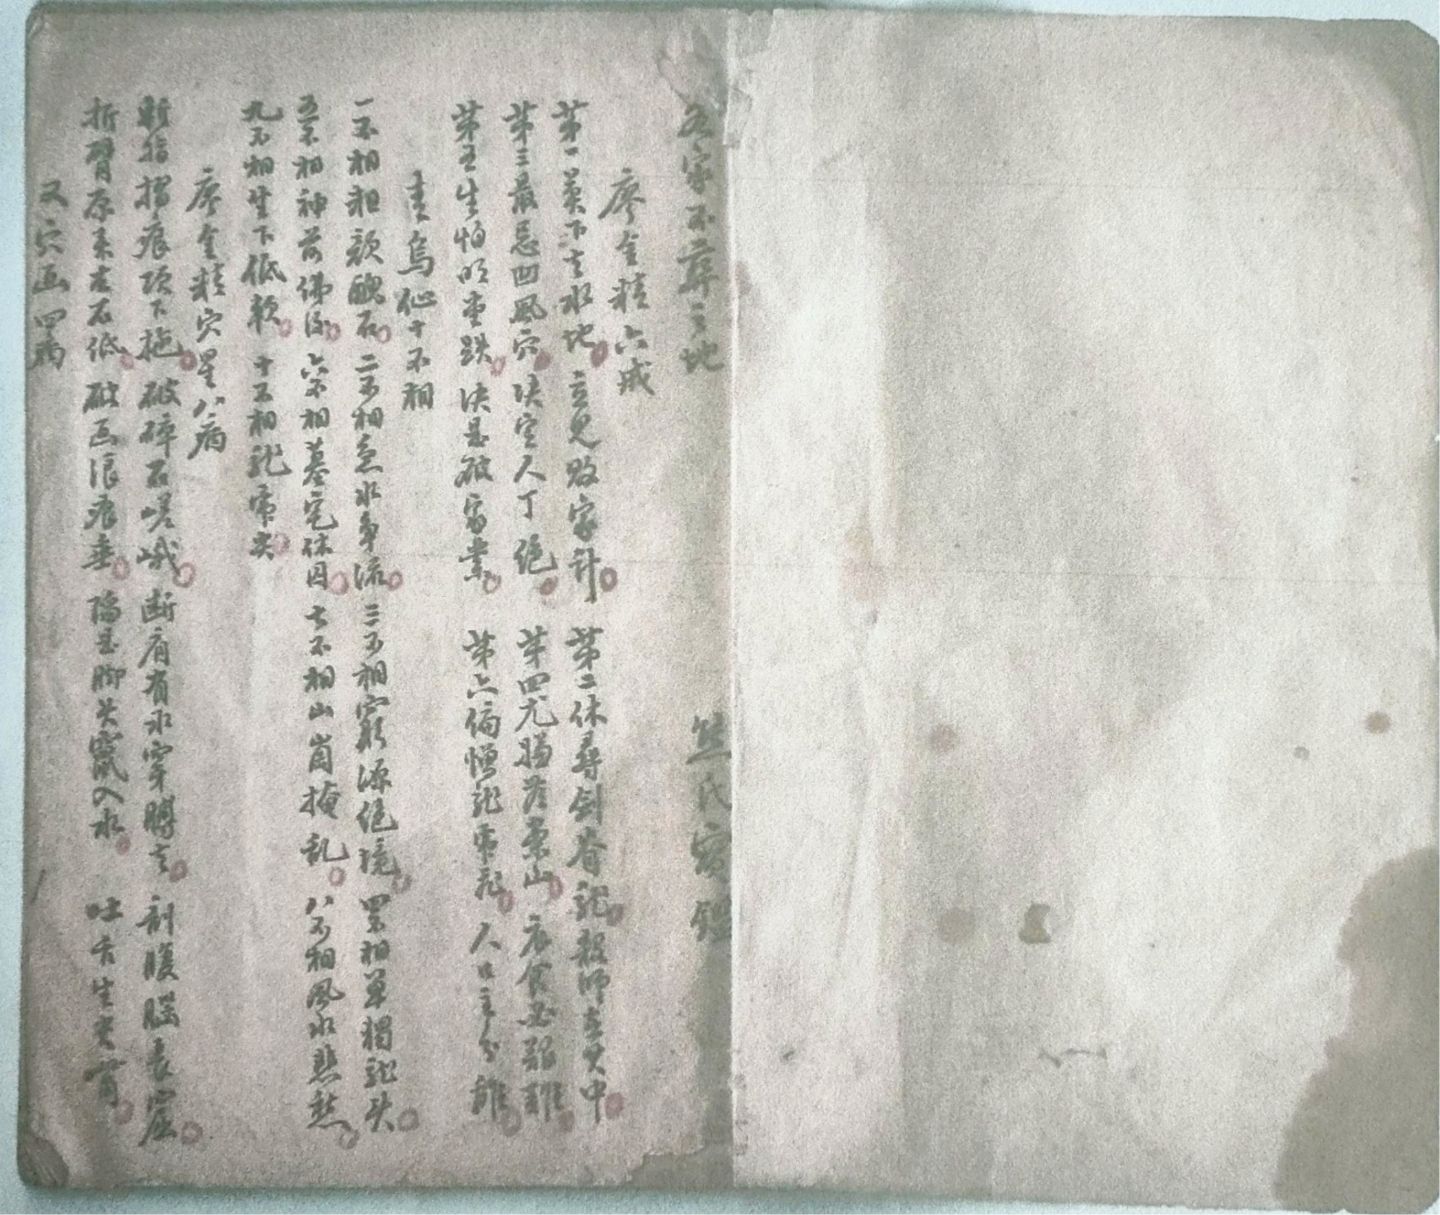 五家不葬之地 熊氏家鑑
廖金精六戒
第一莫下去水地 立見敗家計 第二休尋劍脊龍 殺師在其中
第三最忌凹風穴 決定人丁绝 第四尤嫌落案山 衣食必艱難
第五生怕明堂跌 決是破家業 第六偏憎龍虎飛 人口主分離
青烏仙十不相
一不相粗頑醜石 二不相急水爭流 三不相窮源绝境 四不相單獨龍头
五不相神前佛後 六不相墓宅休囚 七不相山崗掩乱 八不相風水悲愁
九不相坐下低軟 十不相龍虎尖
廖金精穴星八病
斬指摺痕項下拖 破碎石嵯峨 断肩有水穿膊去 剖腹腦長窟
折臂原来左右低 破面浪痕垂 陷是脚头竄入水 吐舌生尖嘴
又穴面四病